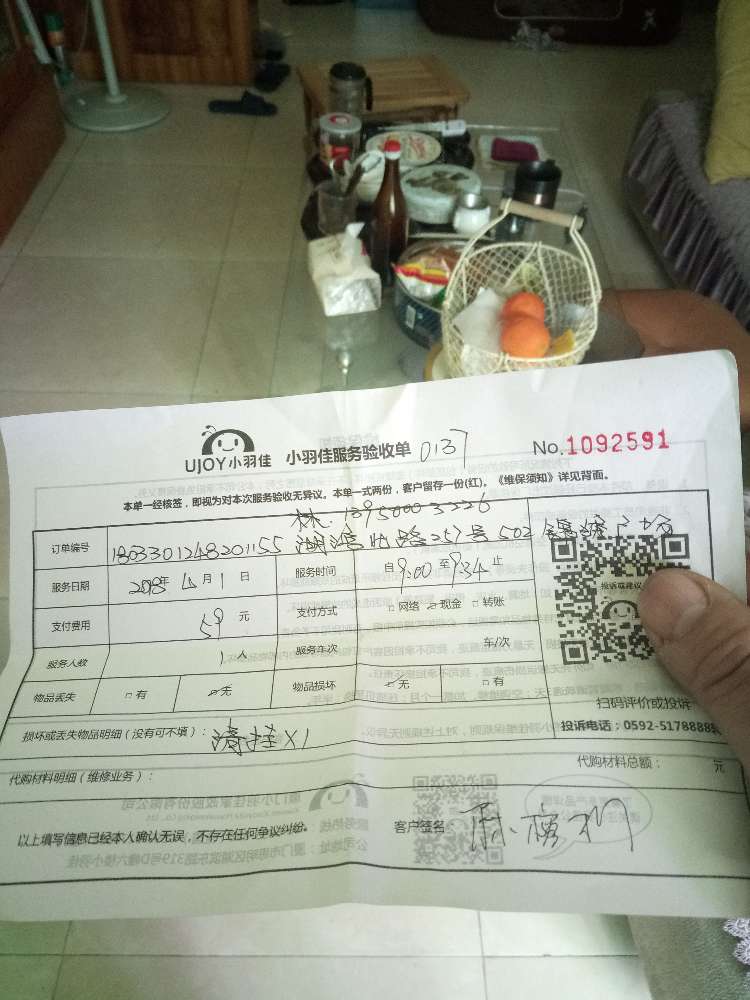 UJOY小羽佳 小羽佳服务验收单 0137 No.1092591
本单一经核签，即视为对本次服务验收无异议。本单一式两份，客户留存一份(红)。《维保须知》详见背面。
林.13950003226
订单编号 1803301248201155 湖滨北路257号502
服务日期 2018年4月1日 服务时间 自9:00至9:34止
支付费用 59元 支付方式 □网络 ☑现金 □转账
投诉或建议
服务人数 1人 服务车次 车/次
物品丢失 □有 ☑无 物品损坏 ☑无 □有
扫码评价或投诉
投诉电话：0592-5178888
损坏或丢失物品明细（没有可不填）：清挂X1
代购材料明细（维修业务）： 代购材料总额： 元
以上填写信息已经本人确认无误，不存在任何争议纠纷。 客户签名